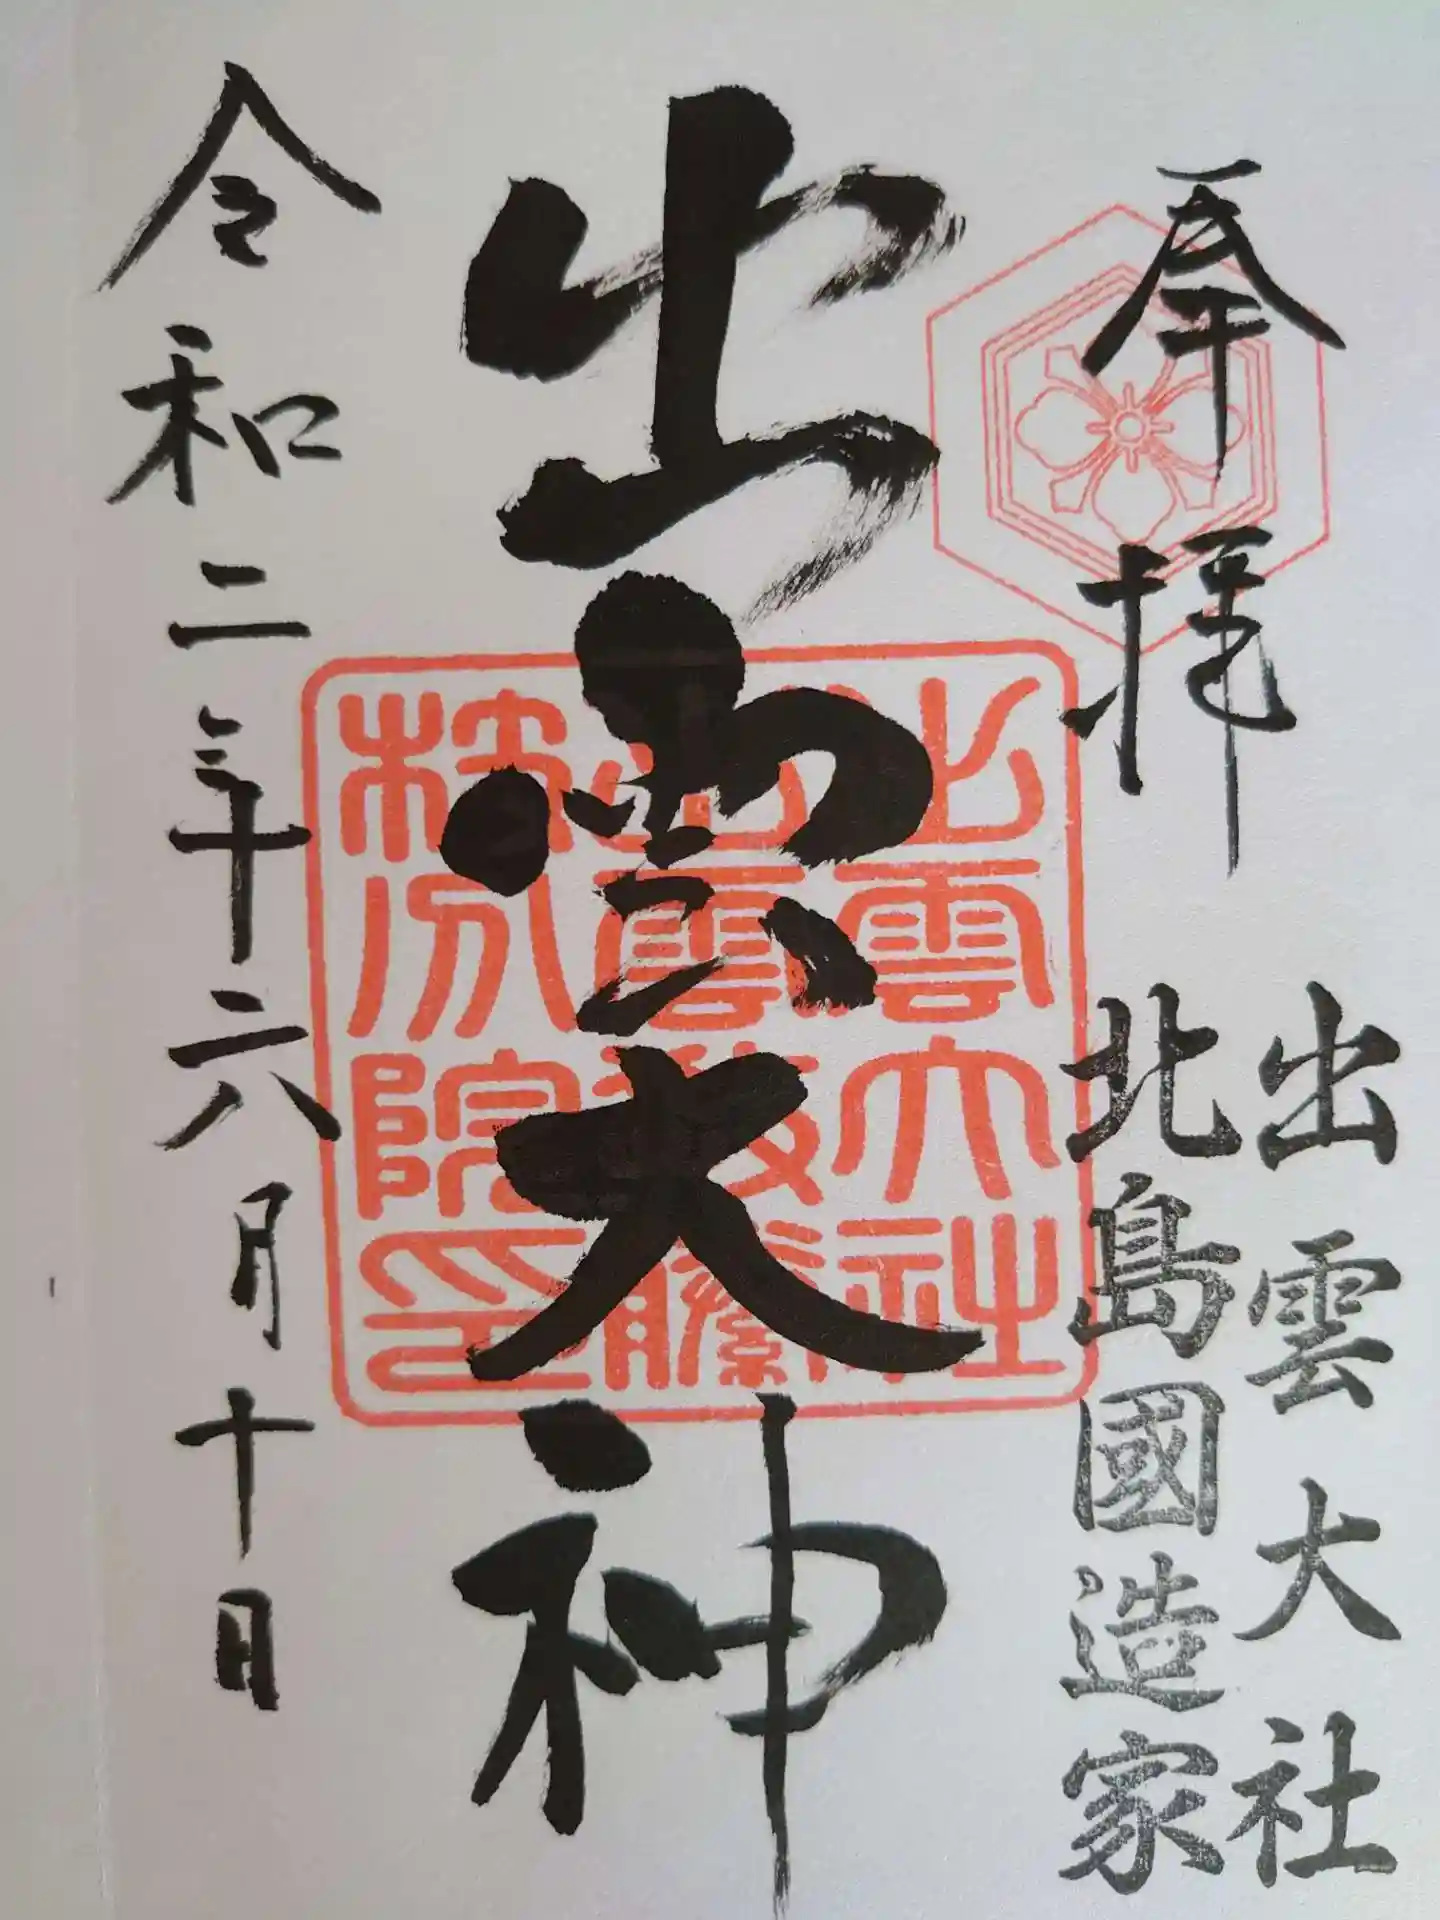 奉拝
出雲大社
北島國造家
出雲大神
出雲大社
出雲教
分院印
令和二年六月十日